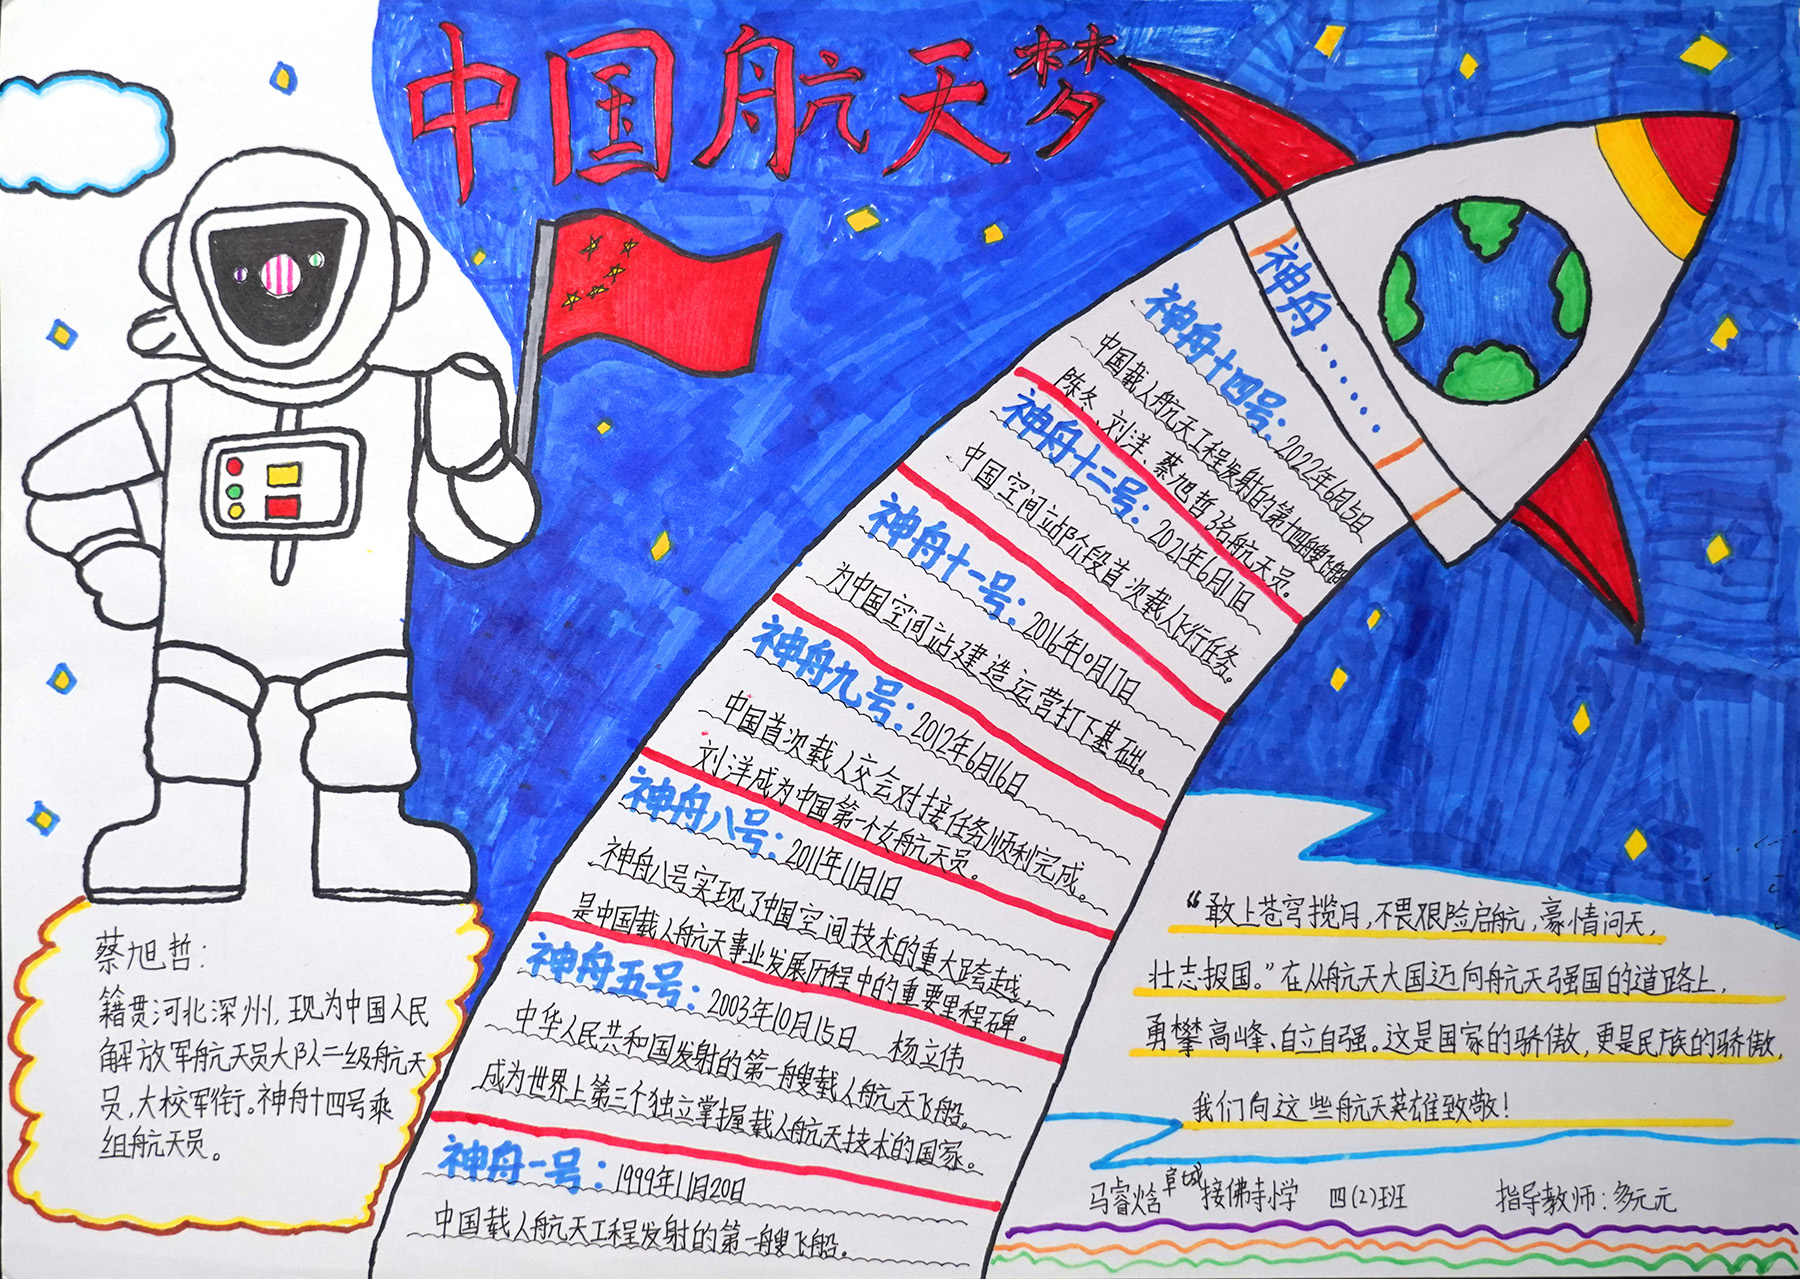 中国航天梦
神舟······
神舟十四号：2022年6月5日
中国载人航天工程发射的第十四艘飞船
陈冬、刘洋、蔡旭哲3名航天员。
神舟十二号：2021年6月17日
中国空间站阶段首次载人飞行任务。
神舟十一号：2016年10月17日
为中国空间站建造运营打下基础。
神舟九号：2012年6月16日
中国首次载人交会对接任务顺利完成。
刘洋成为中国第一个女航天员。
神舟八号：2011年11月1日
神舟八号实现了中国空间技术的重大跨越，
是中国载人航天事业发展历程中的重要里程碑。
神舟五号：2003年10月15日 杨立伟
中华人民共和国发射的第一艘载人航天飞船。
成为世界上第三个独立掌握载人航天技术的国家。
神舟一号：1999年11月20日
中国载人航天工程发射的第一艘飞船。
蔡旭哲：
籍贯河北深州，现为中国人民
解放军航天员大队二级航天
员，大校军衔。神舟十四号乘
组航天员。
“敢上苍穹揽月，不畏艰险启航，豪情问天，
壮志报国。”在从航天大国迈向航天强国的道路上，
勇攀高峰、自立自强。这是国家的骄傲，更是民族的骄傲，
我们向这些航天英雄致敬！
马睿焓 阜城接佛寺小学 四(2)班 指导教师：多元元